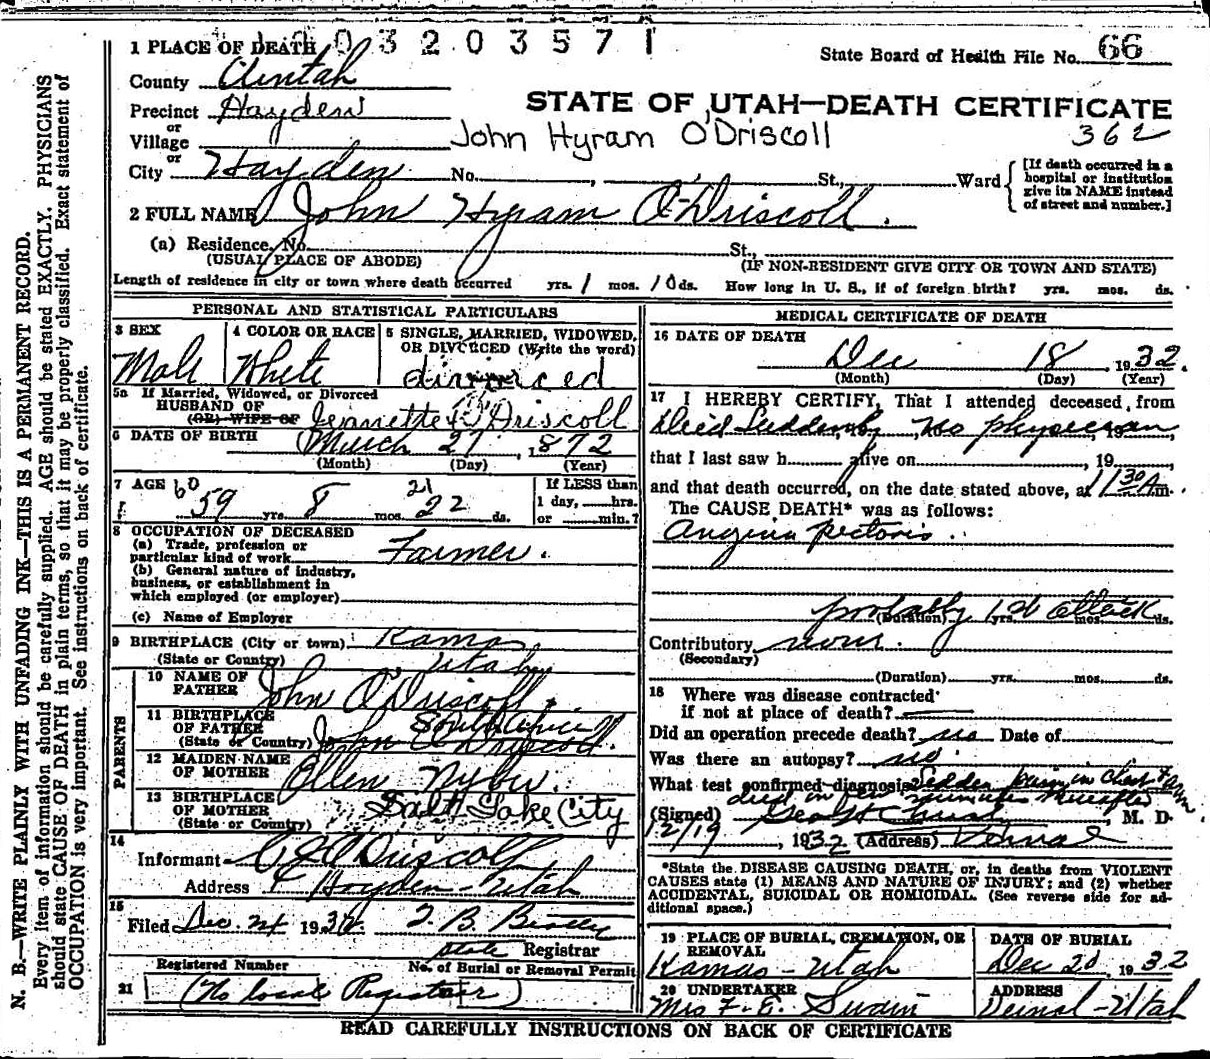 N. B.—WRITE PLAINLY WITH UNFADING INK—THIS IS A PERMANENT RECORD.
Every item of information should be carefully supplied. AGE should be stated EXACTLY. PHYSICIANS
should state CAUSE OF DEATH in plain terms, so that it may be properly classified. Exact statement of
OCCUPATION is very important. See instructions on back of certificate.
03203571
State Board of Health File No. 66
1 PLACE OF DEATH
County Uintah
Precinct Hayden
STATE OF UTAH—DEATH CERTIFICATE
or
Village
John Hyram O'Driscoll
362
or
City Hayden No. , St., Ward
[If death occurred in a
hospital or institution
give its NAME instead
of street and number.]
2 FULL NAME John Hyram O'Driscoll.
(a) Residence, No. St.,
(USUAL PLACE OF ABODE)
(IF NON-RESIDENT GIVE CITY OR TOWN AND STATE)
Length of residence in city or town where death occurred yrs. 1 mos. 10 ds. How long in U. S., if of foreign birth? yrs. mos. ds.
PERSONAL AND STATISTICAL PARTICULARS
3 SEX
Male
4 COLOR OR RACE
White
5 SINGLE, MARRIED, WIDOWED,
OR DIVORCED (Write the word)
divorced
5a If Married, Widowed, or Divorced
HUSBAND OF
(OR) WIFE OF
Jennette O'Driscoll
6 DATE OF BIRTH March 27, 1872
(Month) (Day) (Year)
7 AGE 60
59 yrs. 8 mos. 21 22 ds.
If LESS than
1 day, hrs.
or min.?
8 OCCUPATION OF DECEASED
(a) Trade, profession or
particular kind of work Farmer.
(b) General nature of industry,
business, or establishment in
which employed (or employer)
(c) Name of Employer
9 BIRTHPLACE (City or town) Kamas
(State or Country) Utah
PARENTS
10 NAME OF
FATHER John O'Driscoll.
11 BIRTHPLACE
OF FATHER South Africa
(State or Country) John O'Driscoll.
12 MAIDEN NAME
OF MOTHER Ellen
13 BIRTHPLACE
OF MOTHER Salt Lake City
(State or Country)
14
Informant O'Driscoll
Address Hayden - Utah
15
Filed Dec. 1932
State Registrar
Registered Number
No. of Burial or Removal Permit
21 (No local Registrar)
MEDICAL CERTIFICATE OF DEATH
16 DATE OF DEATH
Dec 18, 1932.
(Month) (Day) (Year)
17 I HEREBY CERTIFY, That I attended deceased, from
Died Suddenly, 19 , no physician, 19 ,
that I last saw h alive on , 19
and that death occurred, on the date stated above, at 11 30 A.m.
The CAUSE DEATH* was as follows:
Angina pectoris.
probably 1st attack
(Duration) yrs. mos. ds.
Contributory none.
(Secondary)
(Duration) yrs. mos. ds.
18 Where was disease contracted
if not at place of death?
Did an operation precede death? no Date of
Was there an autopsy? no
What test confirmed diagnosis Sudden pain in chest & arm
died in minutes thereafter
(Signed) , M. D.
12/19, 1932 (Address) Vernal
*State the DISEASE CAUSING DEATH, or, in deaths from VIOLENT
CAUSES state (1) MEANS AND NATURE OF INJURY; and (2) whether
ACCIDENTAL, SUICIDAL OR HOMICIDAL. (See reverse side for ad-
ditional space.)
19 PLACE OF BURIAL, CREMATION, OR
REMOVAL
Kamas - Utah
DATE OF BURIAL
Dec 20, 1932
20 UNDERTAKER
Mrs F. E. Swain
ADDRESS
Vernal - Utah
READ CAREFULLY INSTRUCTIONS ON BACK OF CERTIFICATE